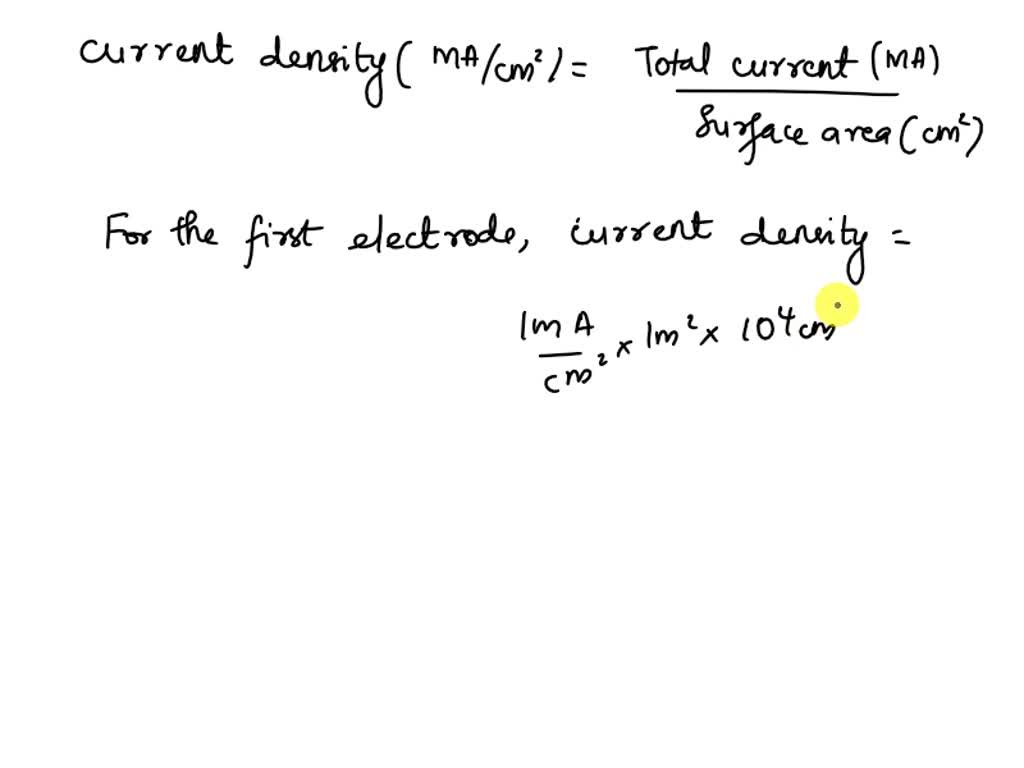 current density ( MA/cm²) = Total current (MA)
Surface area (cm²)
For the first electrode, current density =
1m A / cm² × 1m² × 10⁴ cm